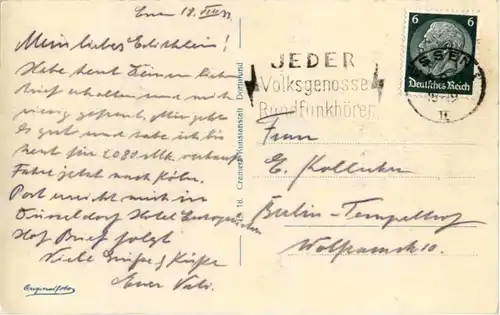 Essen 18. VIII. 33
Mein liebes Edithlein!
Habe heut Deinen lieben
Brief erhalten und mich
riesig gefreut. Mir geht
es gut und habe ich bis
heut für 2080 Mk. verkauft
Fahre jetzt nach Köln.
Post erreicht mich in
Düsseldorf Hotel Europäischer
Hof Brief folgt
Viele Grüße & Küsse
Euer Vati.
Originalfoto
18 Cramers Kunstanstalt Dortmund
JEDER
Volksgenosse
Rundfunkhörer
6 6
Deutsches Reich
ESSEN
18-19
Frau
E. Kollicker
Berlin-Tempelhof
Wolframstr. 10.